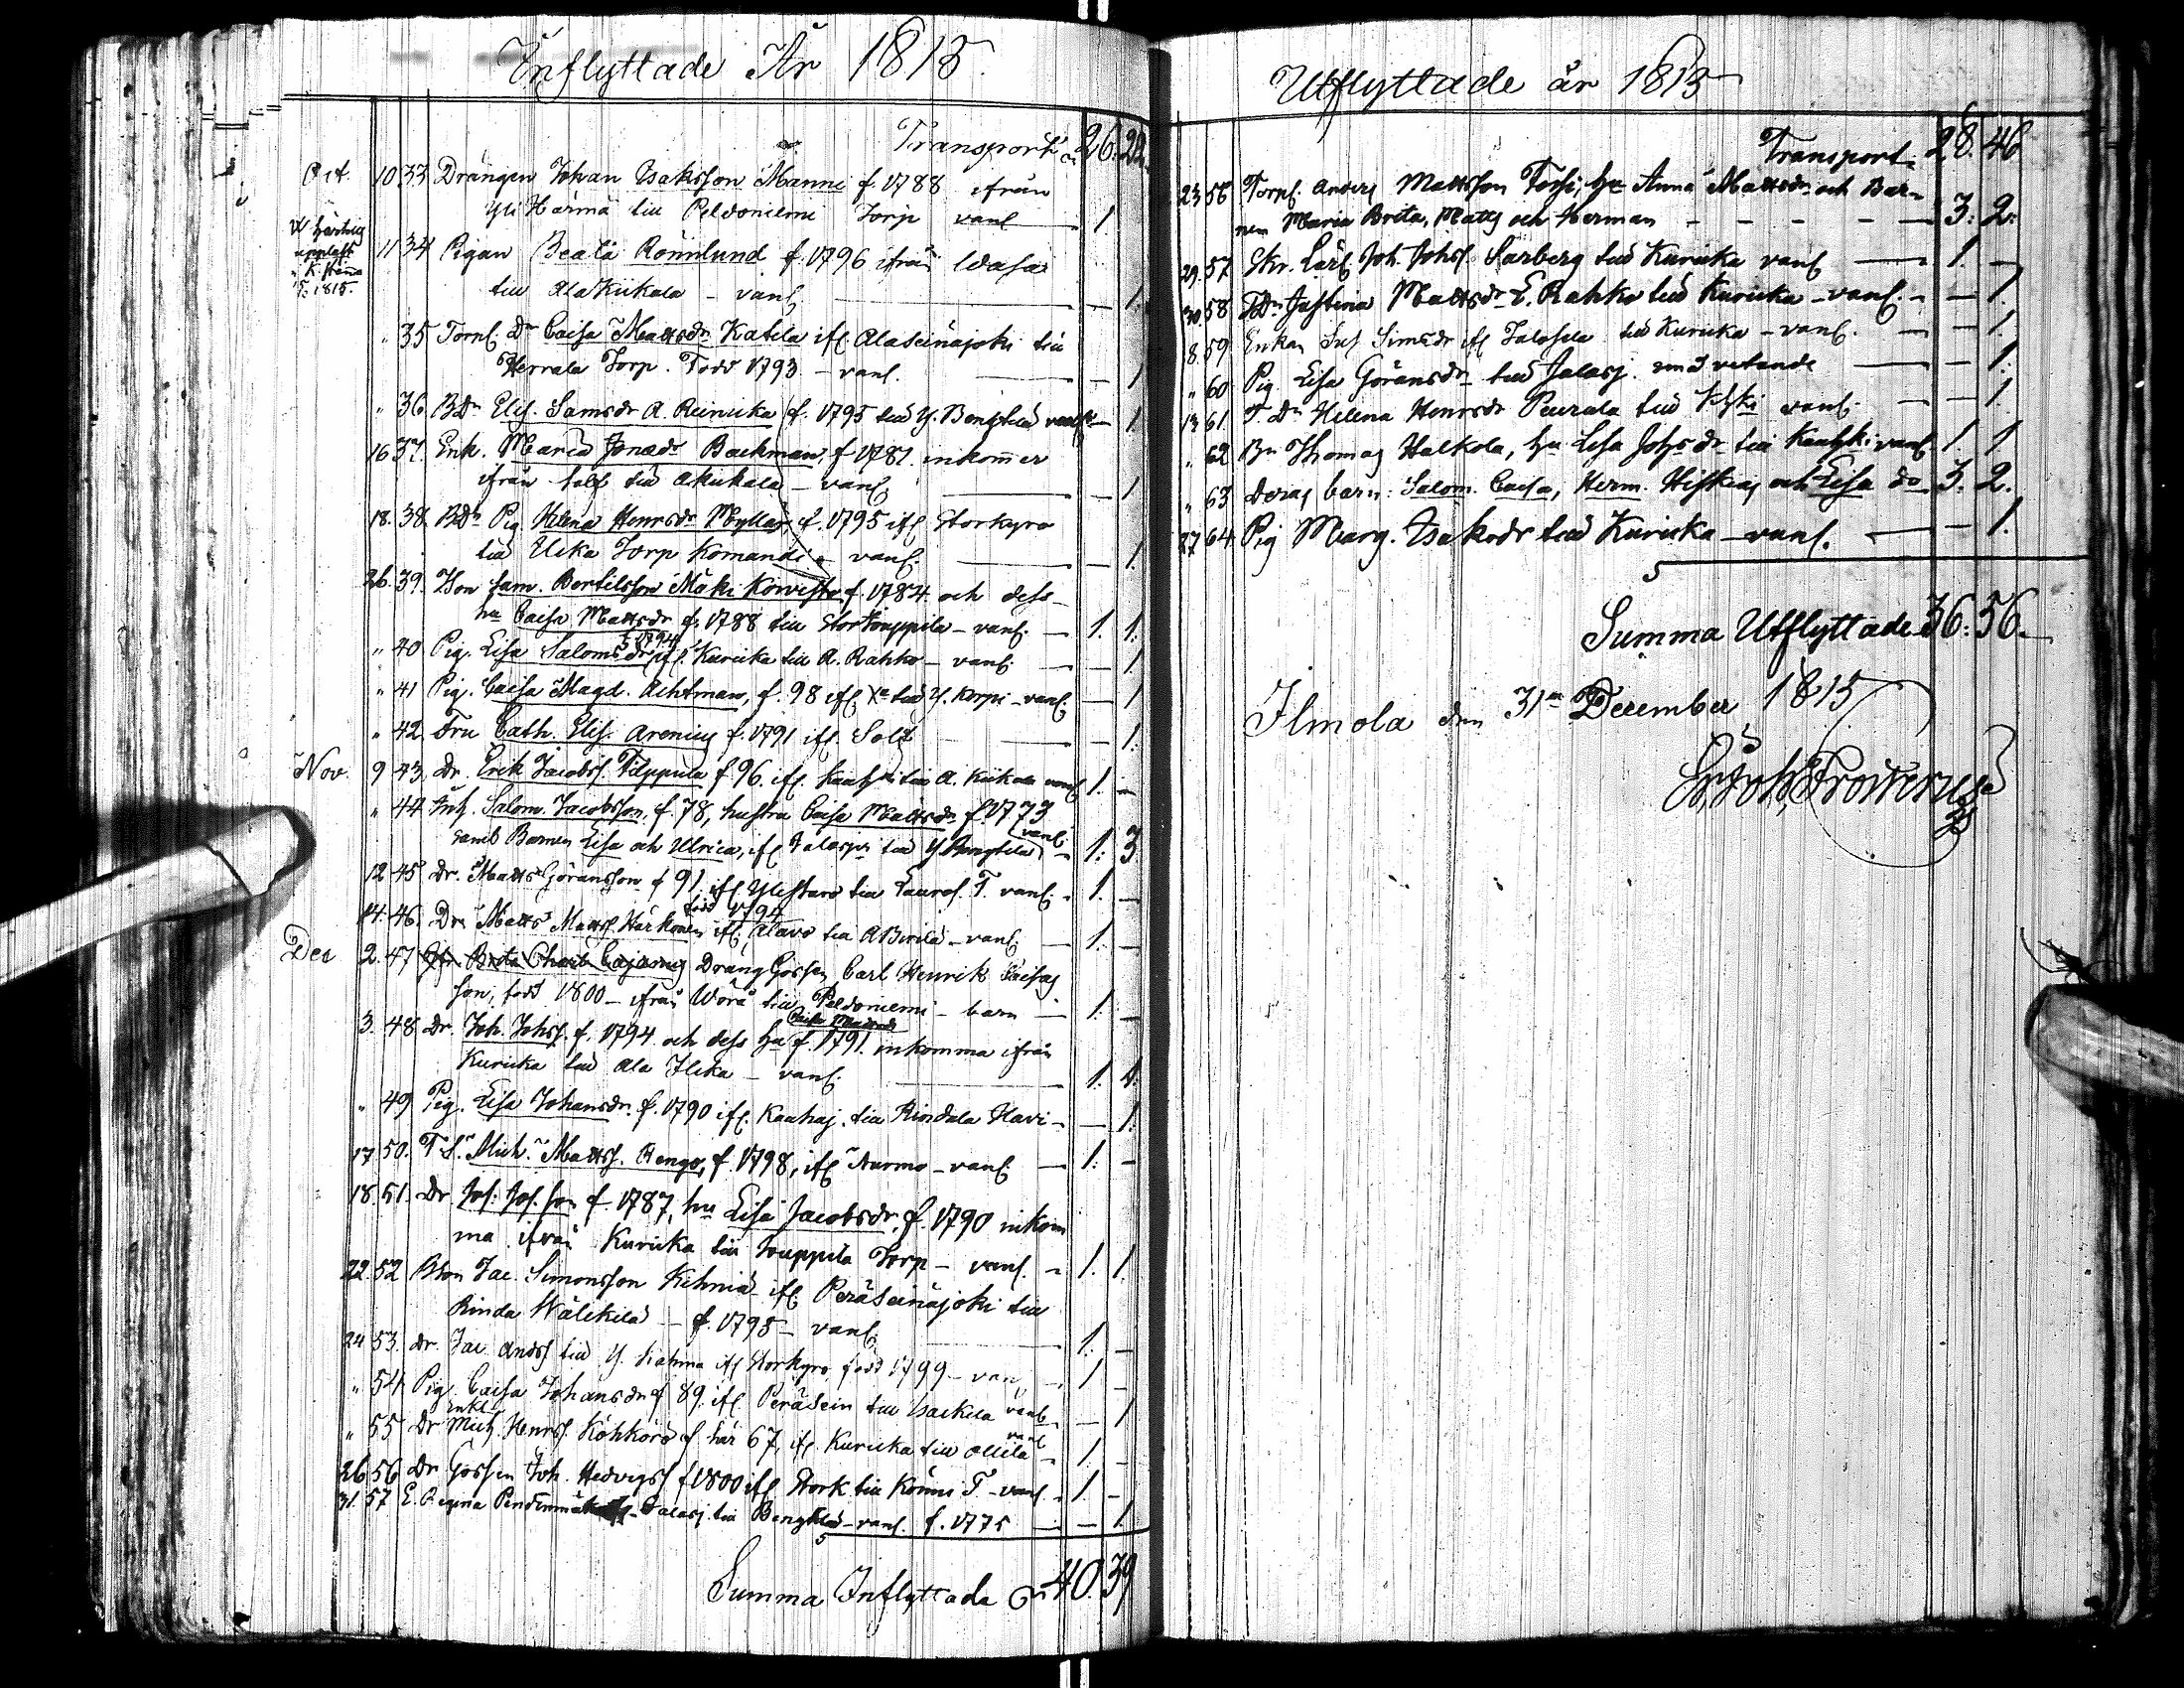 Inflyttade År 1815.
Transport 26. 22.
Oct. 10 33 Drängen Johan Isaksson Manni f. 1788 ifrån
Yli Härmä till Peldoniemi Torp vanl. — 1.
11 34 Pigan Beata Rönnlund f. 1796 ifrån Wasa
till Ala Kiikala – vanl. — 1.
" 35 Tornl. Dr Caisa Mattsdr Katila ifl. Alaseinäjoki till
Herrala Torp. Född 1793. – vanl. — 1
" 36. BDr Elis. Samsdr A. Reinicka f. 1795 till Y. Bengtila vanl. — 1
16 37. Enk. Maria Jonædr Backman, f. 1781. inkom̄er
ifrån till Akiikala – vanl. — 1
18. 38. BDr Pig. Helena Henrsdr Myllar, f. 1795 ifl. Storkyro
till Ulka Torp Komandi – vanl. — 1.
26. 39. Bon Sam. Bertilsson Mäki Korvisto f. 1784. och dess
hu Caisa Mattsdr f. 1788 till Storjouppila – vanl. — 1. 1.
" 40 Pig. Lisa Salomsdr f. 1794 ifl. Kuricka till A. Rahko – vanl. — 1.
" 41 Pig. Caisa Magd. Achtman, f. 98 ifl. till Y. Korpi – vanl. — 1
" 42. Fru Cath. Elis. Arenius f. 1791 ifl. — 1.
Nov. 9 43. Dr. Erik Jacobs. Filppula f. 96. ifl. till A. Kiikala vanl. 1. –
" 44 Inh. Salom. Jacobsson, f. 78, hustru Caisa Mattsdr f. 1773
samt Barnen Lisa och Ulrica, ifl. Jalasjvi till Y Bengtila vanl. – 1. 3
12 45 Dr. Matts Göransson f. 91. ifl. Ylistaro till Laurol. T. vanl. – 1. –
14. 46. Dr. Matts Matts. Härkönen född 1794 ifl. Alavo till – vanl. — 1. –
Dec 2. 47 Brita Charl. Cajanus Dräng Gossen Carl Henrik Caisas
son, född 1800 – ifrån Wörå till Peldoniemi – barn — 1. –
3. 48 Dr. Joh. Johss. f. 1794 och dess hu Caisa Mattsdr f. 1791. inkomma ifrån
Kuricka till Ala Ilkka – vanl. — 1. 1.
" 49 Pig. Lisa Johansdr. f. 1790 ifl. Kauhaj. till Rindala Havi – — 1.
17 50. T.S. Mich. Matts. Rengo, f. 1798, ifl. Nurmo – vanl. — 1. –
18. 51. Dr Jos. Jos. son f. 1787, hu Lisa Jacobsdr. f. 1790 inkom
ma ifrån Kuricka till Jouppila Torp – vanl. – 1. 1.
22. 52 Bson Jac. Simonsson Kihniä ifl. Peräseinäjoki till
Rinda Wälikilä – f. 1795 – vanl. — 1. –
24 53. Dr. Jac. Ands. till Y. ifl. Storkyro, född 1799 – van — 1 –
" 54 Pig. Caisa Johansdr f. 89. ifl. Peräsein till Isackila vanl. – 1
" 55 Dr enkl. Mich. Henrs. Köhkörö f. här 67, ifl. Kuricka till Ollila vanl. – 1. –
26 56 Dr Gossen Joh. Hedvigss. f. 1800 ifl. Stork till Könni T – vanl. – 1. –
31. 57 E. Regina Jalasj. till Bengtila – vanl. f. 1775 — – 1.
Summa Inflyttade 40. 39
Utflyttade år 1815
Transport 28. 46
23 56 Torpl. Anders Mattsson Torsi, hu Anna Mattsdr och Bar-
nen Maria Brita, Matts och Herman – – – – 3. 2.
29. 57 Skr. Lärl. Joh. Johss. Sarberg till Kuricka vanl. — 1. –
30. 58 TDr Justina Mattsdr L. Rahko till Kuricka – vanl. – – 1.
8. 59 Enkan Sus. Simsdr ifl. till Kuricka – vanl. — – 1.
" 60 Pig. Lisa Göransdr till Jalasj. — – 1.
13 61. T. Dr Helena Henrsdr Peurala till vanl. — – 1.
" 62 Bn Thomas Halkola, hu Lisa Johsdr till vanl. 1. 1
" 63 Deras barn: Salom. Caisa, Herm. Hiskias och Lisa do 3. 2.
27 64. Pig Marg. Isaksdr till Kuricka – vanl. — – 1.
Summa Utflyttade 36. 56.
Ilmola den 31 December 1815